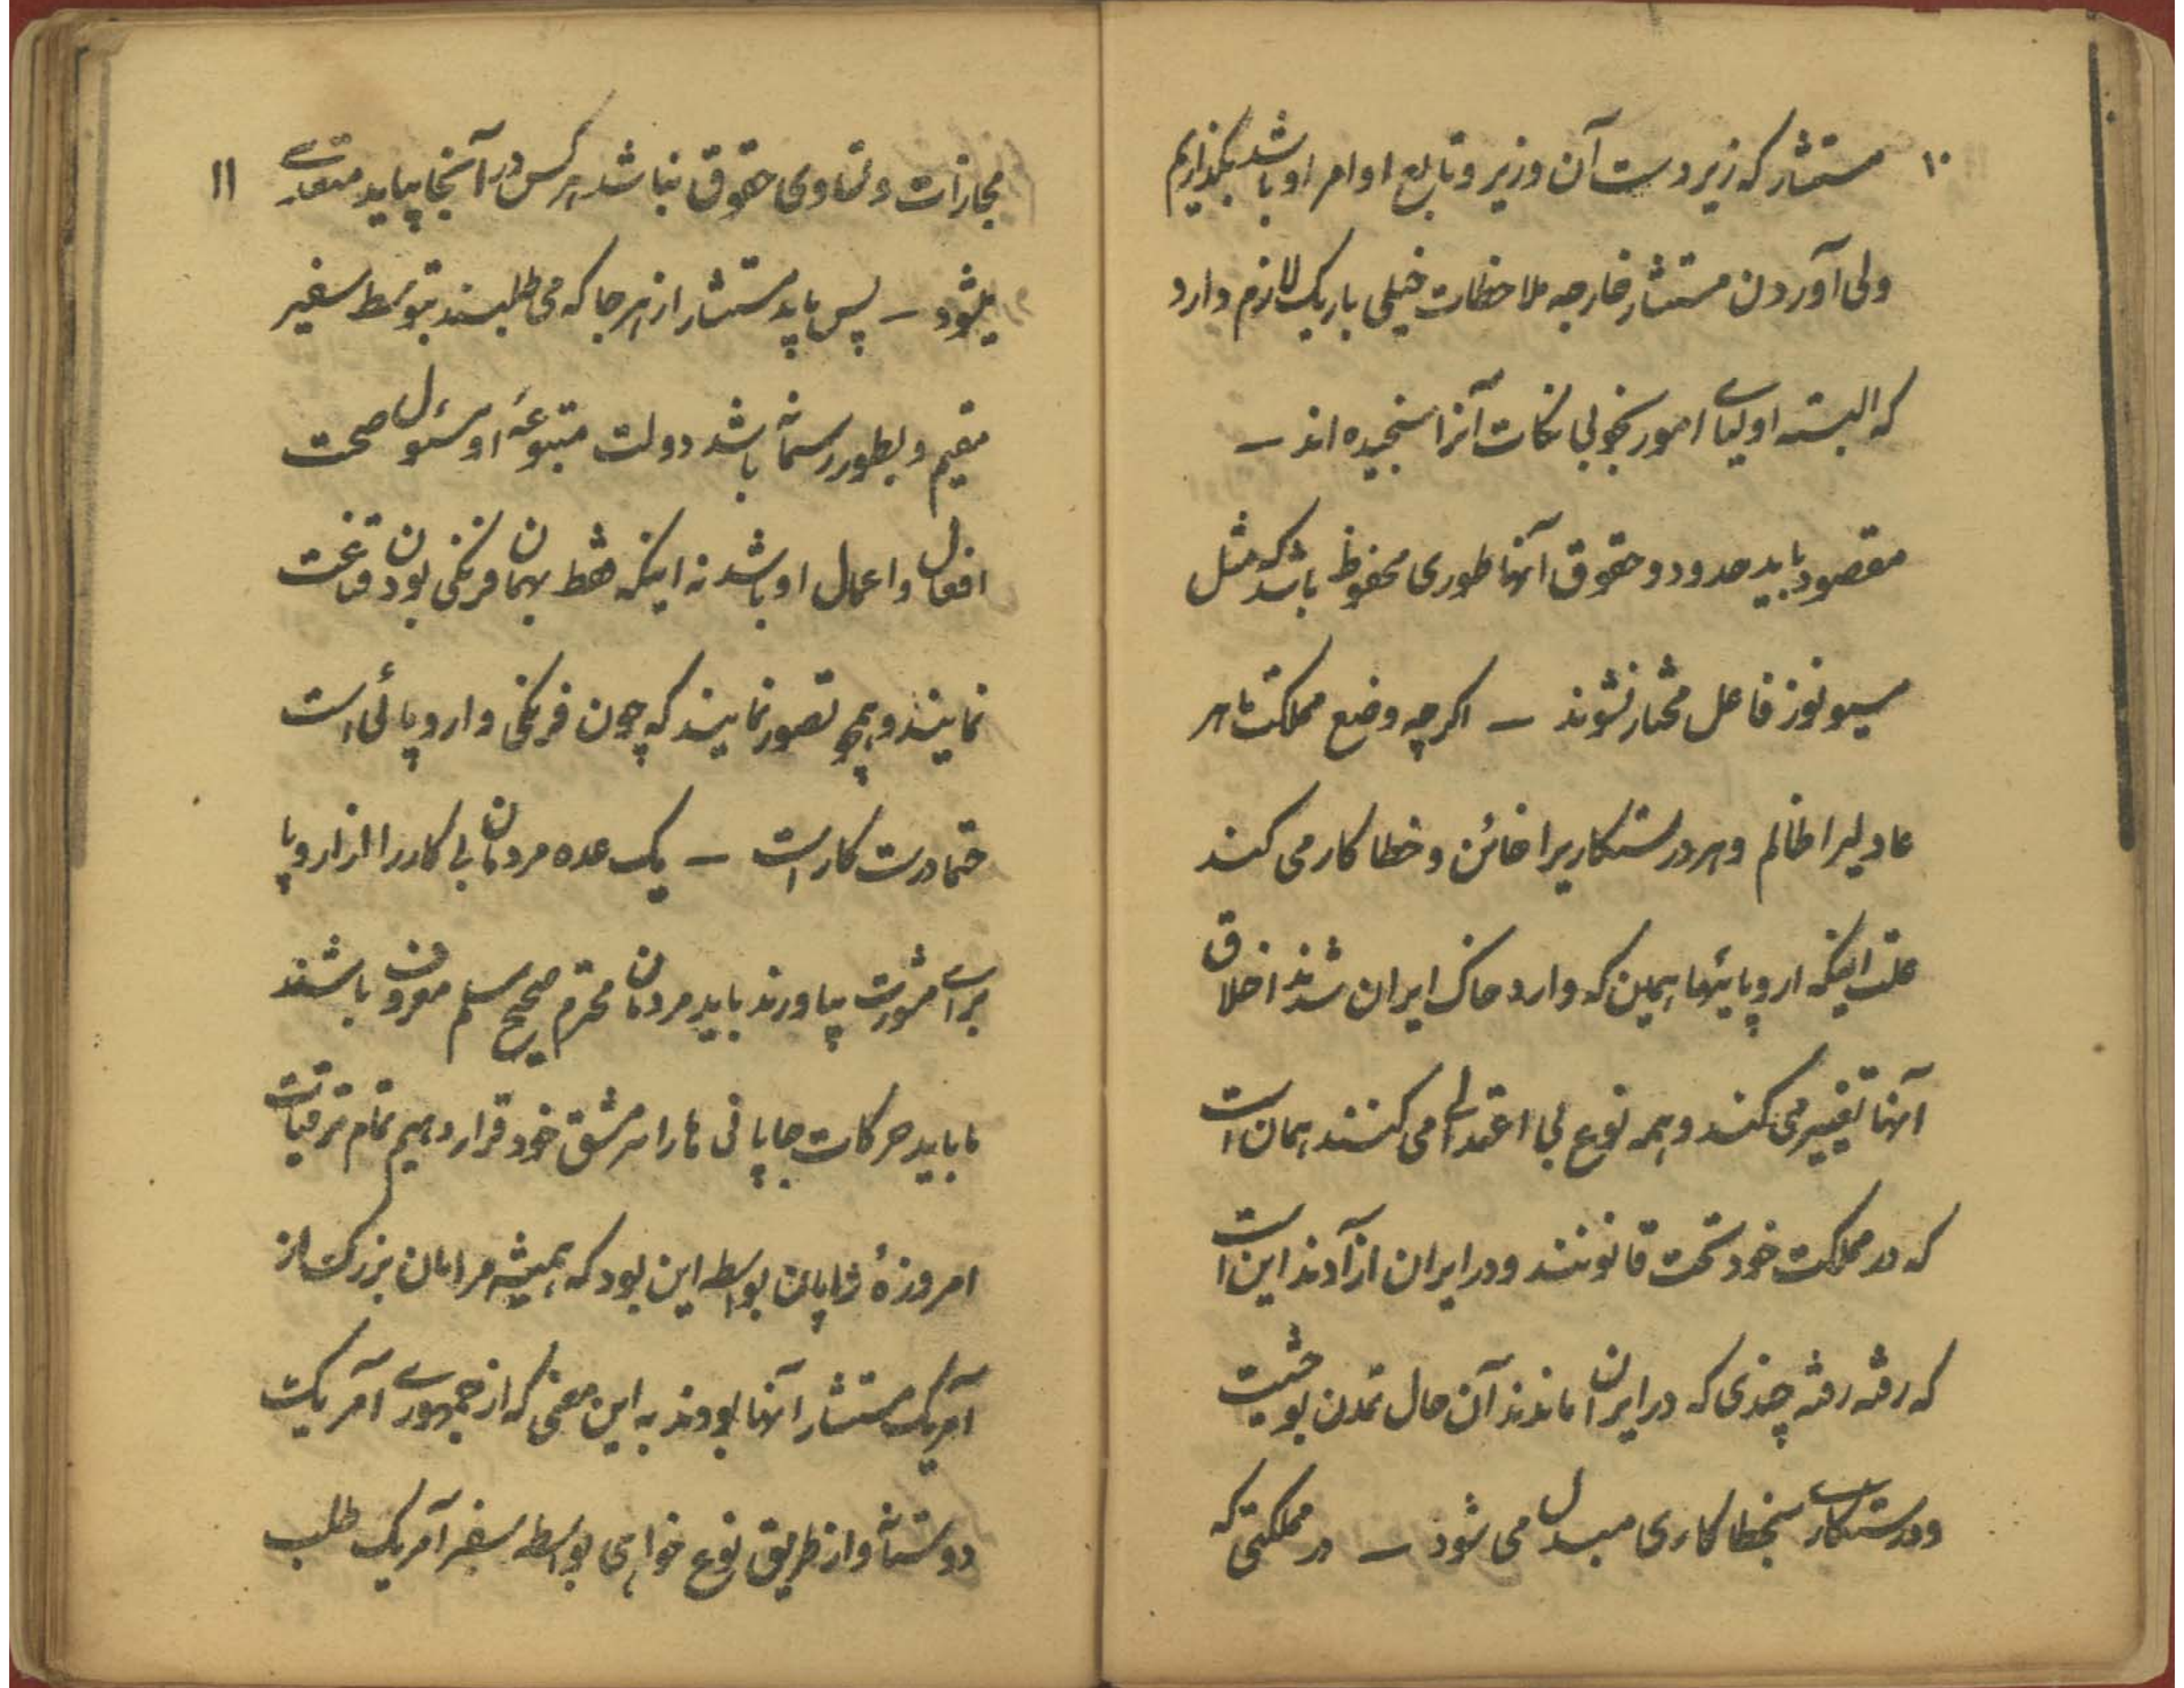 ۱۰
مستشار که زیر دست آن وزیر و تابع اوامر او باشد بگذاریم
ولی آوردن مستشار خارجه ملاحظات خیلی باریک لازم دارد
که البته اولیای امور بخوبی نکات آنرا سنجیده اند –
مقصود باید حدود و حقوق آنها طوری محفوظ باشد که مثل
مسیو نوز فاعل مختار نشوند – اگرچه وضع مملکت ما هر
عادلیرا ظالم و هر درستکاریرا خائن و خطا کار می کند
علت اینکه اروپائیها همین که وارد خاک ایران شدند اخلاق
آنها تغییر می کند و همه نوع بی اعتدالی می کنند همان است
که در مملکت خود تحت قانونند و در ایران آزادند این است
که رفته رفته چندی که در ایران ماندند آن حال تمدن بوحشیت
و درستکاری بخطا کاری مبدل می شود – در مملکتی که
۱۱
مجازات و تساوی حقوق نباشد هر کس در آنجا بیاید متعدی
میشود – پس باید مستشار از هر جا که می طلبند بتوسط سفیر
مقیم و بطور رسمانه باشد دولت متبوعهٔ او مسئول صحت
افعال و اعمال او باشد نه اینکه فقط بهمان فرنگی بودن قناعت
نمایند و همچو تصور نمایند که چون فرنگی و اروپائی است
حتما درست کار است – یک عده مردمان بی کار را از اروپا
برای مشورت بیاورند باید مردمان محترم صحیح مسلم معروف باشند
ما باید حرکات جاپانی ها را سرمشق خود قرار دهیم تمام ترقیات
امروزهٔ ژاپان بواسطه این بود که همیشه مردمان بزرگ از
آمریک مستشار آنها بودند به این معنی که از جمهوری آمریک
دوستانه و از طریق نوع خواهی بواسطه سفیر آمریک طلب